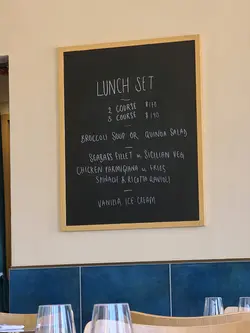 LUNCH SET
2 COURSE
3 COURSE
BROCCOLI SOUP OR QUINOA SALAD
SEABASS FILLET w SICILIAN VEG
CHICKEN PARMIGIANA w FRIES
SPINACH & RICOTTA RAVIOLI
VANILLA ICE CREAM